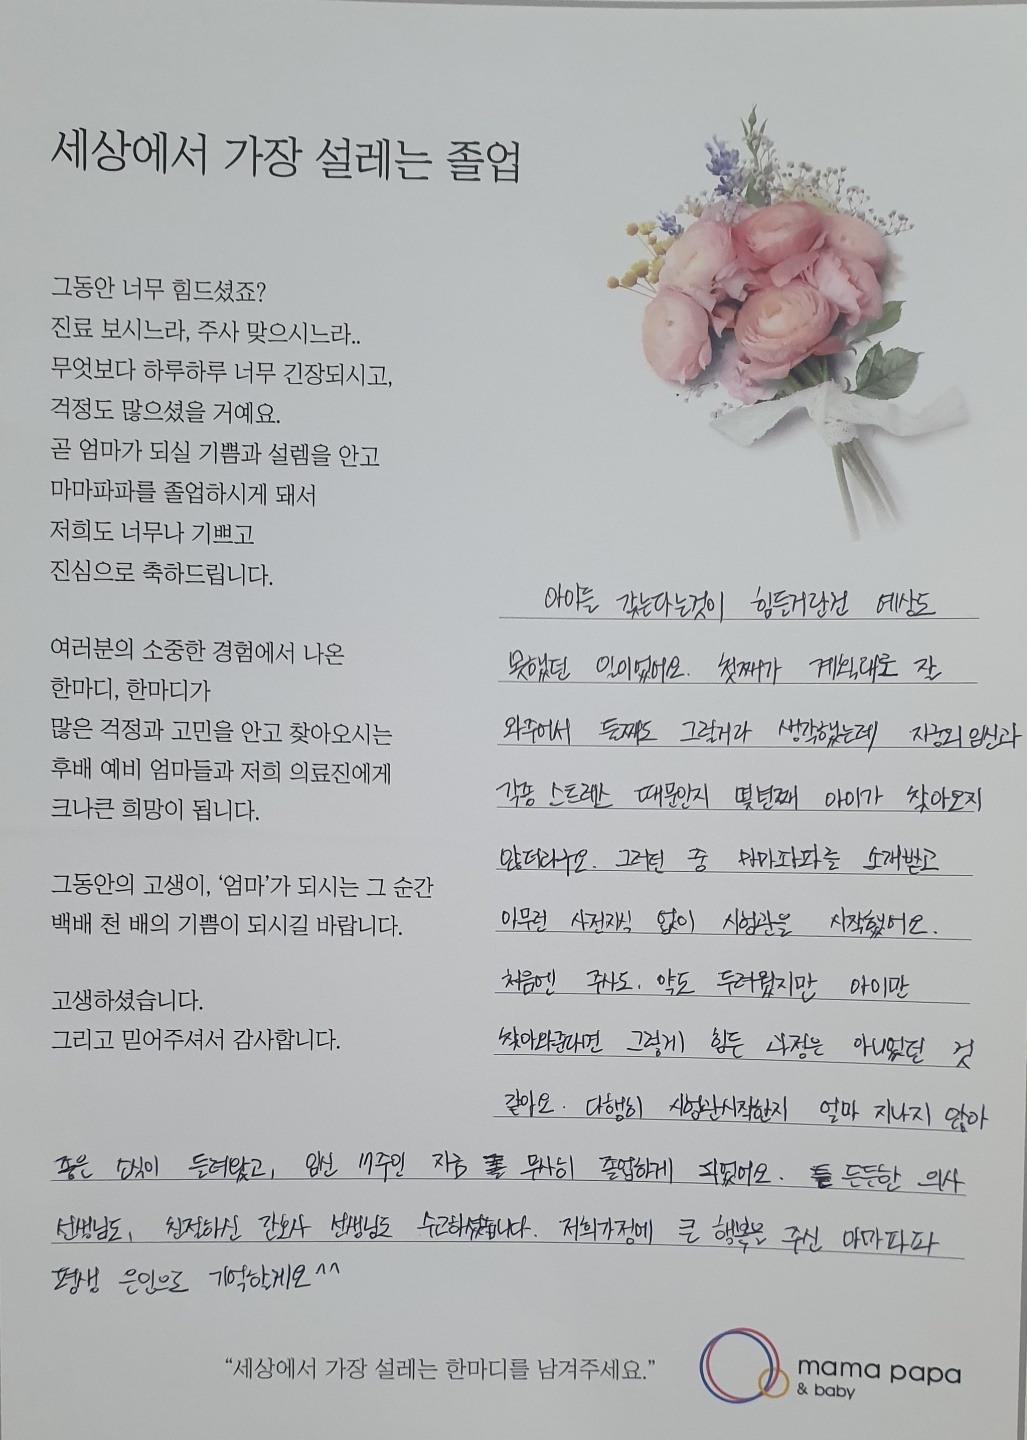 세상에서 가장 설레는 졸업
그동안 너무 힘드셨죠?
진료 보시느라, 주사 맞으시느라..
무엇보다 하루하루 너무 긴장되시고,
걱정도 많으셨을 거예요.
곧 엄마가 되실 기쁨과 설렘을 안고
마마파파를 졸업하시게 돼서
저희도 너무나 기쁘고
진심으로 축하드립니다.
여러분의 소중한 경험에서 나온
한마디, 한마디가
많은 걱정과 고민을 안고 찾아오시는
후배 예비 엄마들과 저희 의료진에게
크나큰 희망이 됩니다.
그동안의 고생이, '엄마'가 되시는 그 순간
백배 천 배의 기쁨이 되시길 바랍니다.
고생하셨습니다.
그리고 믿어주셔서 감사합니다.
아이를 갖는다는것이 힘든거란건 예상도
못했던 일이었어요. 첫째가 계획대로 잘
와주어서 둘째도 그럴거라 생각했는데 자궁외 임신과
각종 스트레스 때문인지 몇년째 아이가 찾아오지
않더라구요. 그러던 중 마마파파를 소개받고
아무런 사전지식 없이 시험관을 시작했어요.
처음엔 주사도. 약도 두려웠지만 아이만
찾아와준다면 그렇게 힘든 과정은 아니었던 것
같아요. 다행히 시험관시작한지 얼마 지나지 않아
좋은 소식이 들려왔고, 임신 11주인 지금 무사히 졸업하게 되었어요. 든든한 의사
선생님도, 친절하신 간호사 선생님도 수고하셨습니다. 저희가정에 큰 행복을 주신 마마파파
평생 은인으로 기억할게요^^
"세상에서 가장 설레는 한마디를 남겨주세요."
mama papa
& baby